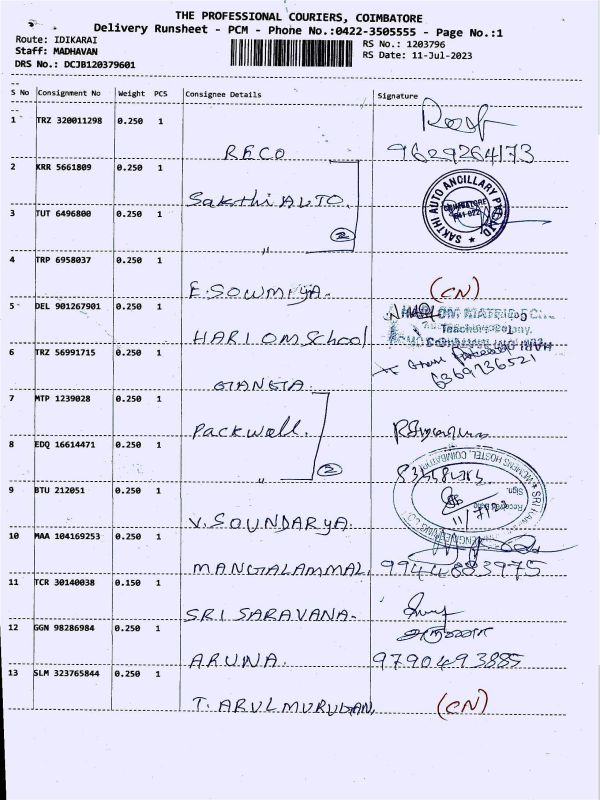 THE PROFESSIONAL COURIERS, COIMBATORE
Delivery Runsheet - PCM - Phone No.:0422-3505555 - Page No.:1
Route: IDIKARAI RS No.: 1203796
Staff: MADHAVAN RS Date: 11-Jul-2023
DRS No.: DCJB120379601
S No Consignment No Weight PCS Consignee Details Signature
1 TRZ 320011298 0.250 1
RECO 9629264173
2 KRR 5661809 0.250 1
Sakthi AUTO. SAKTHI AUTO ANCILLARY COIMBATORE
3 TUT 6496800 0.250 1
" 2
4 TRP 6958037 0.250 1
E. SOWMIYA. (CN)
5 DEL 901267901 0.250 1
HARI OM School Teachers Colony,
6 TRZ 56991715 0.250 1
GANGA. 6369736521
7 MTP 1239028 0.250 1
Packwell.
8 EDQ 16614471 0.250 1
2 WOMENS HOSTEL, COIMBATORE
9 BTU 212051 0.250 1
V. SOUNDARYA. Sign.
10 MAA 104169253 0.250 1
MANGALAMMAL. 9944883975
11 TCR 30140038 0.150 1
SRI SARAVANA.
12 GGN 98286984 0.250 1
ARUNA. 9790493885
13 SLM 323765844 0.250 1
T. ARULMURUGAN, (CN)